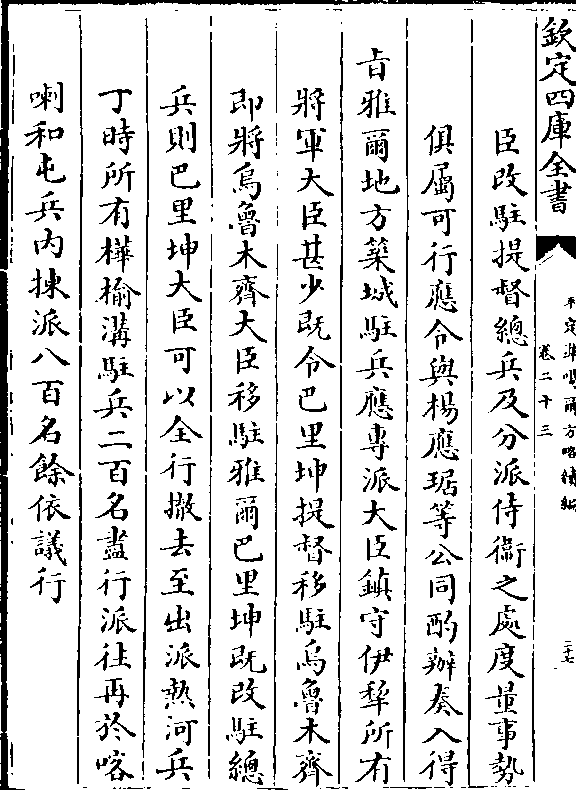 欽定四庫全書
平定準噶爾方略續編
卷二十三
二十七
臣改駐提督總兵及分派侍衛之處度量事勢
俱屬可行應令與楊應琚等公同酌辦奏入得
㫖雅爾地方築城駐兵應專派大臣鎮守伊犂所有
將軍大臣甚少既令巴里坤提督移駐烏魯木齊
即將烏魯木齊大臣移駐雅爾巴里坤既改駐總
兵則巴里坤大臣可以全行撤去至出派熱河兵
丁時所有樺榆溝駐兵二百名盡行派往再於喀
喇和屯兵内揀派八百名餘依議行